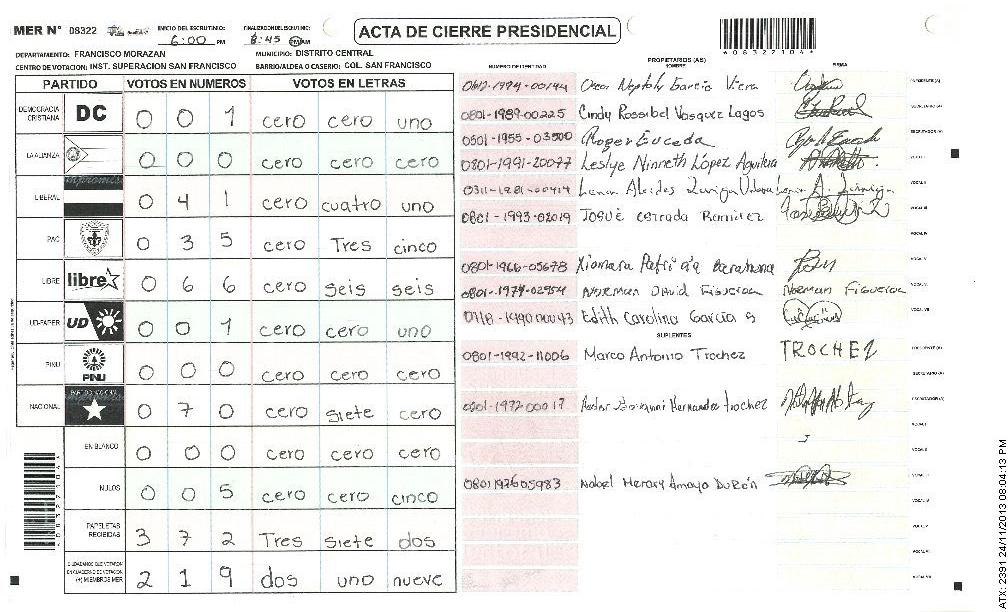 MER N° 08322
INICIO DEL ESCRUTINIO: 6:00 PM
FINALIZACION DEL ESCRUTINIO: 8:45 PM
ACTA DE CIERRE PRESIDENCIAL
*08322104*
DEPARTAMENTO: FRANCISCO MORAZAN
MUNICIPIO: DISTRITO CENTRAL
CENTRO DE VOTACION: INST. SUPERACION SAN FRANCISCO
BARRIO/ALDEA O CASERIO: COL. SAN FRANCISCO
PARTIDO VOTOS EN NUMEROS VOTOS EN LETRAS
DEMOCRACIA CRISTIANA DC 0 0 1 cero cero uno
LA ALIANZA 0 0 0 cero cero cero
LIBERAL 0 4 1 cero cuatro uno
PAC 0 3 5 cero Tres cinco
LIBRE libre 0 6 6 cero seis seis
UD-FAPER UD 0 0 1 cero cero uno
PINU PINU 0 0 0 cero cero cero
NACIONAL 0 7 0 cero siete cero
EN BLANCO 0 0 0 cero cero cero
NULOS 0 0 5 cero cero cinco
PAPELETAS RECIBIDAS 3 7 2 Tres siete dos
CIUDADANOS QUE VOTARON EN CUADERNO DE VOTACION (+) MIEMBROS MER 2 1 9 dos uno nueve
NUMERO DE IDENTIDAD PROPIETARIOS (AS) NOMBRE FIRMA
0612-1994-00144 Oscar Neptaly Garcia Viera PRESIDENTE(A)
0801-1989-00225 Cindy Rossibel Vasquez Lagos SECRETARIO(A)
0501-1955-03500 Roger Euceda ESCRUTADOR(A)
0801-1991-20077 Leslye Ninneth López Aguilera VOCAL I
0311-1981-00414 VOCAL II
0801-1993-02019 Josué cerrada Ramirez VOCAL III
VOCAL IV
0801-1966-05678 Xiomara Barahona VOCAL V
0801-1979-02954 NORMAN DAVID FIGUEROA NORMAN FIGUEROA
Edith Carolina Garcia S
SUPLENTES
0801-1992-11006 Marco Antonio Trochez TROCHEZ PRESIDENTE(A)
SECRETARIO(A)
0801-1972-00017 Hernandez trochez ESCRUTADOR(A)
VOCAL I
VOCAL II
0801197605983 Mabel Amaya Durón VOCAL III
VOCAL IV
VOCAL V
VOCAL VI
VOCAL VII
ATX: 2391 24/11/2013 08:04:13 PM